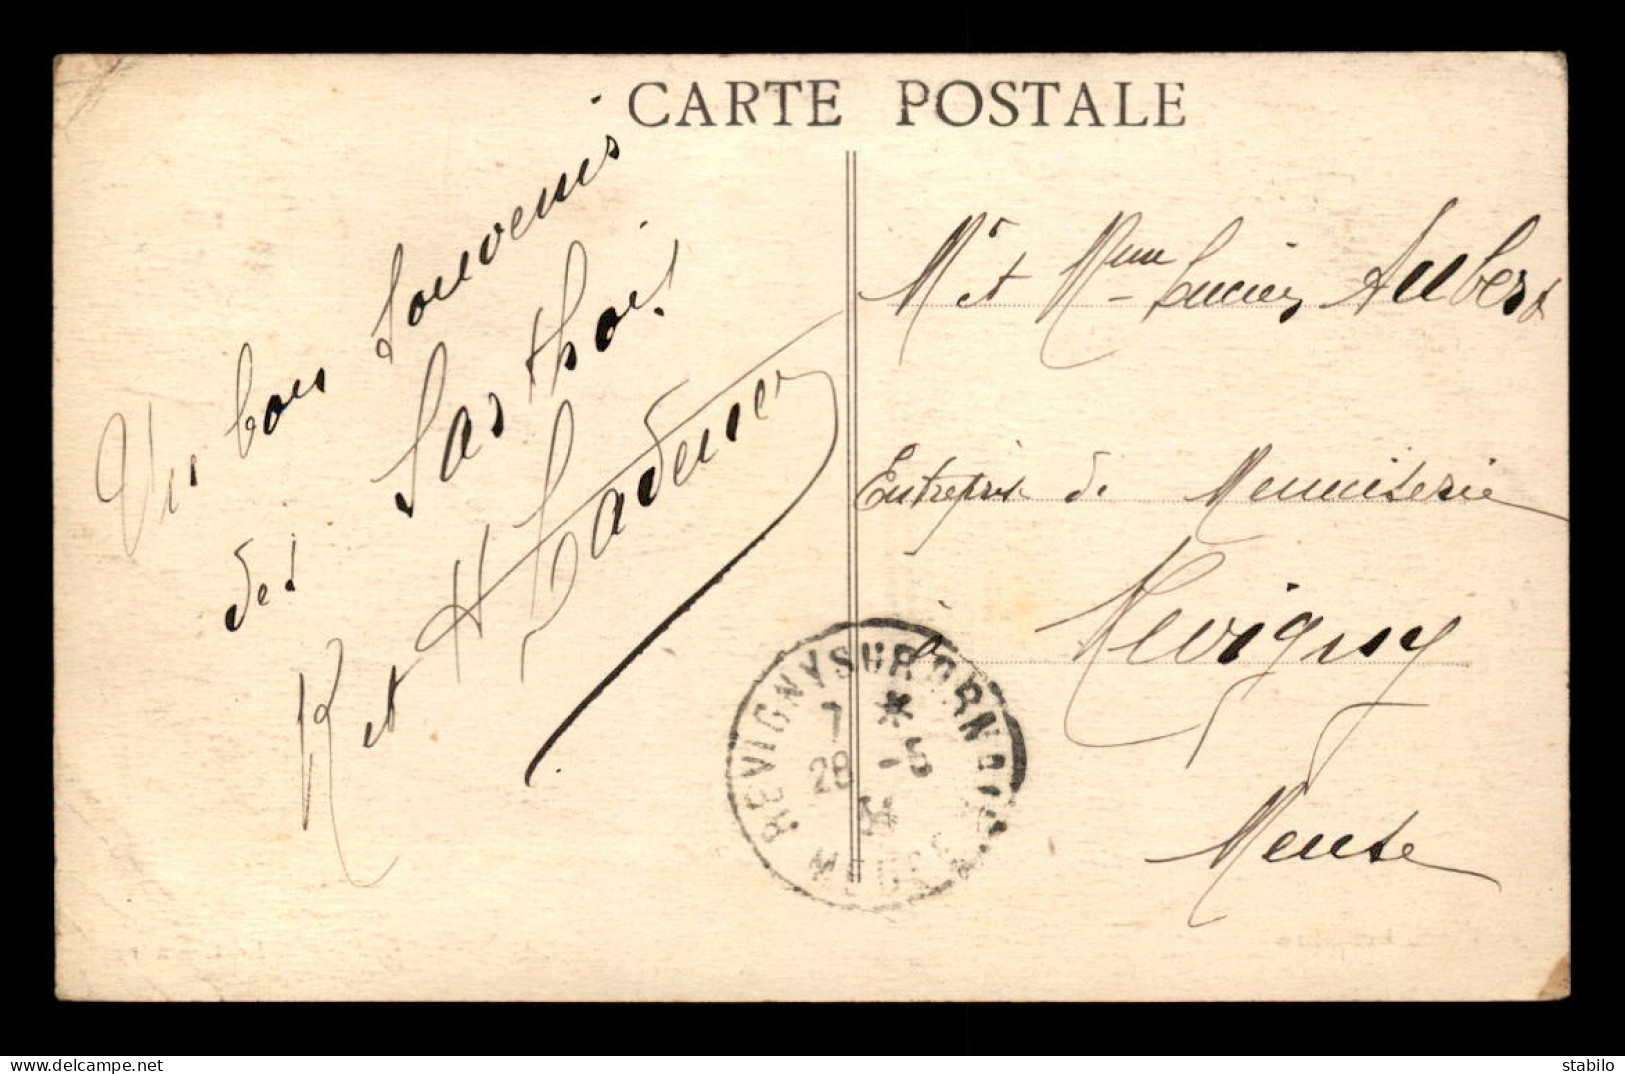 CARTE POSTALE
Un bon souvenir
des Sarthois!
R et H Ladener
Mr et Mme Lucien Aubert
Entreprise de Menuiserie
à Revigny
Meuse
REVIGNY SUR ORNAIN
7 * 
28 - 5
MEUSE
delcampe.net
stabilo